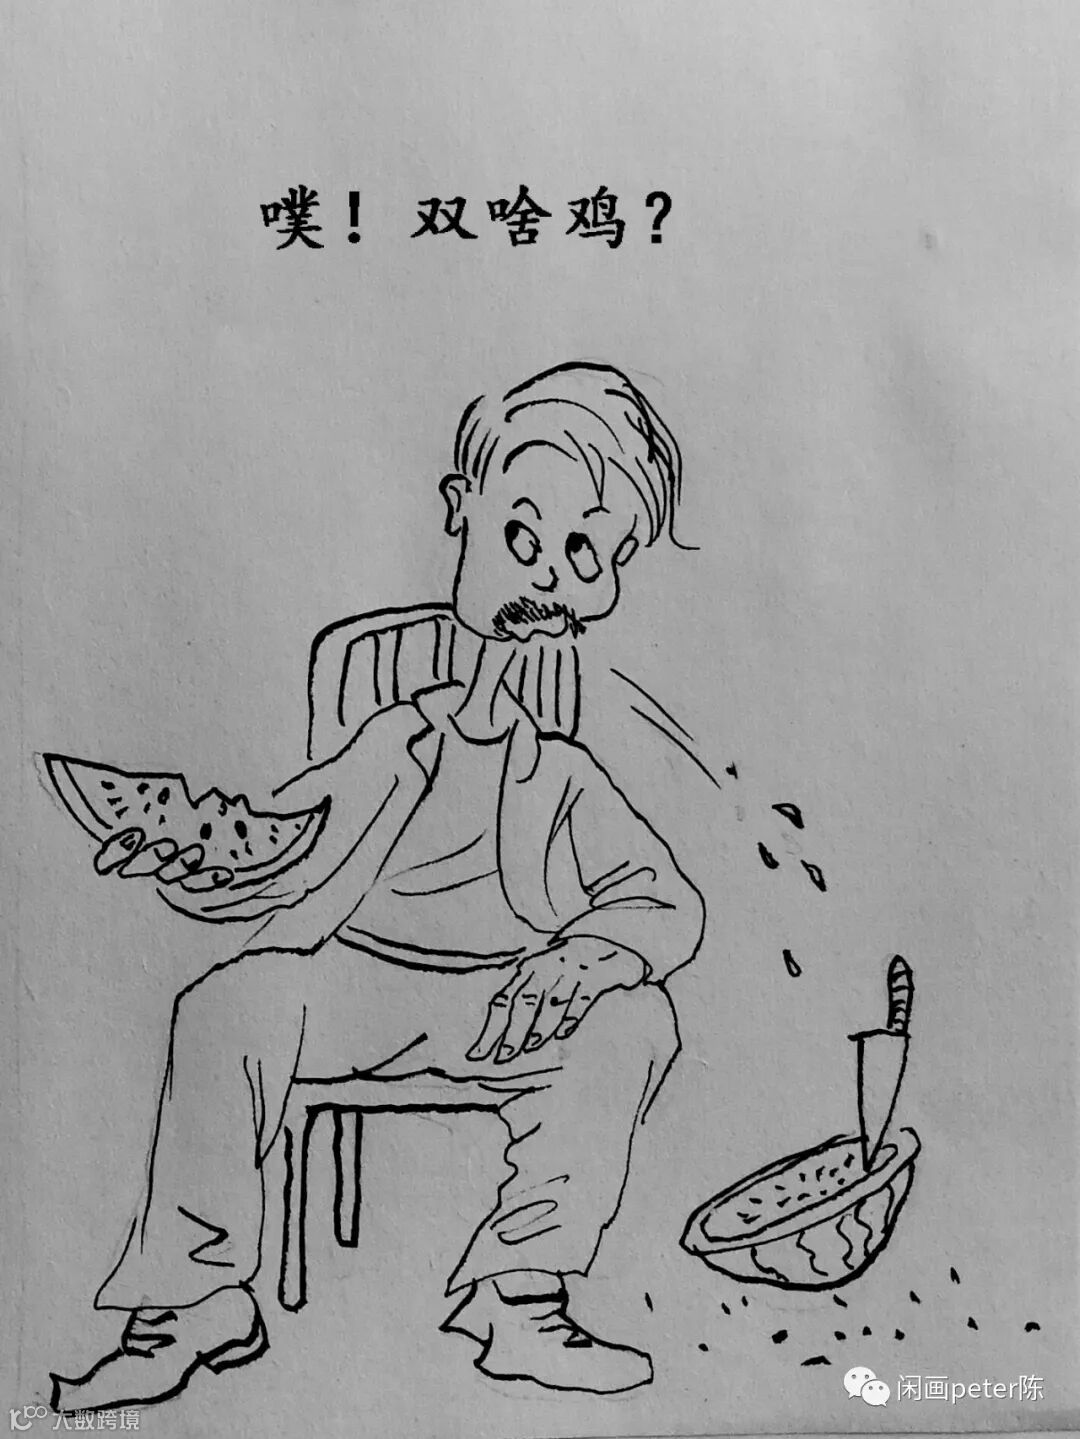 噗！双啥鸡？
闲画peter陈
大数跨境